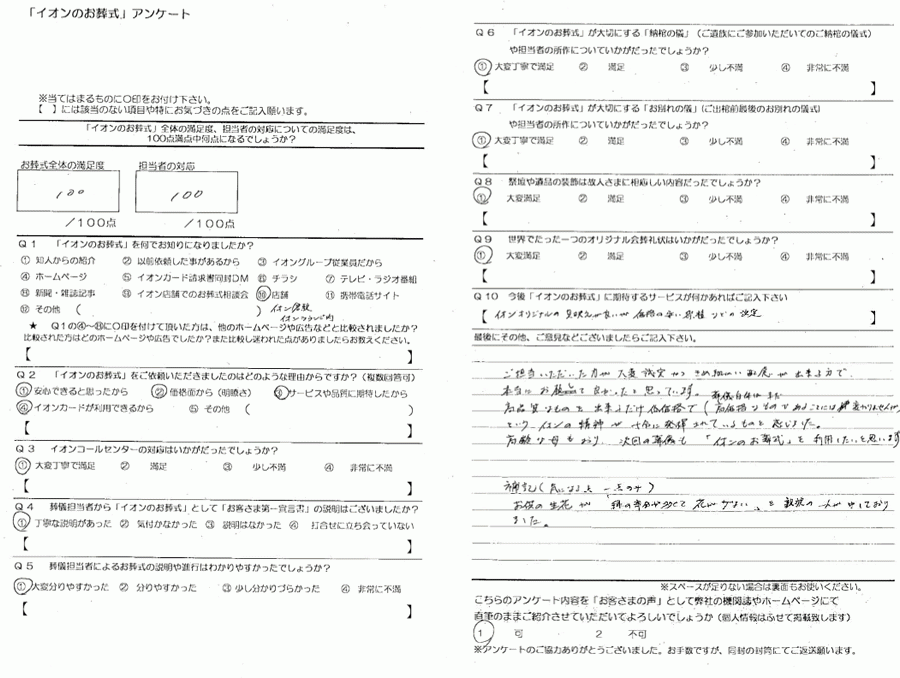 「イオンのお葬式」アンケート
※当てはまるものに〇印をお付け下さい。
【 】には該当のない項目や特にお気づきの点をご記入願います。
「イオンのお葬式」全体の満足度、担当者の対応についての満足度は、
100点満点中何点になるでしょうか?
お葬式全体の満足度 担当者の対応
100 100
/100点 /100点
Q1 「イオンのお葬式」を何でお知りになりましたか?
① 知人からの紹介 ② 以前依頼した事があるから ③ イオングループ従業員だから
④ ホームページ ⑤ イオンカード請求書同封DM ⑥ チラシ ⑦ テレビ・ラジオ番組
⑧ 新聞・雑誌記事 ⑨ イオン店舗でのお葬式相談会 ⑩ 店舗 ⑪ 携帯電話サイト
⑫ その他 ( )
★ Q1の④~⑪に〇印を付けて頂いた方は、他のホームページや広告などと比較されましたか?
比較された方はどのホームページや広告でしたか?また比較し迷われた点がありましたらお教えください。
【 】
Q2 「イオンのお葬式」をご依頼いただきましたのはどのような理由からですか?(複数回答可)
① 安心できると思ったから ② 価格面から(明瞭さ) ③ サービスや品質に期待したから
④ イオンカードが利用できるから ⑤ その他 ( )
【 】
Q3 イオンコールセンターの対応はいかがだったでしょうか?
① 大変丁寧で満足 ② 満足 ③ 少し不満 ④ 非常に不満
【 】
Q4 葬儀担当者から「イオンのお葬式」として「お客さま第一宣言書」の説明はございましたか?
① 丁寧な説明があった ② 気付かなかった ③ 説明はなかった ④ 打合せに立ち会っていない
【 】
Q5 葬儀担当者によるお葬式の説明や進行はわかりやすかったでしょうか?
① 大変分りやすかった ② 分りやすかった ③ 少し分かりづらかった ④ 非常に不満
【 】
Q6 「イオンのお葬式」が大切にする「納棺の儀」(ご遺族にご参加いただいてのご納棺の儀式)
や担当者の所作についていかがだったでしょうか?
① 大変丁寧で満足 ② 満足 ③ 少し不満 ④ 非常に不満
【 】
Q7 「イオンのお葬式」が大切にする「お別れの儀」(ご出棺前最後のお別れの儀式)
や担当者の所作についていかがだったでしょうか?
① 大変丁寧で満足 ② 満足 ③ 少し不満 ④ 非常に不満
【 】
Q8 祭壇や遺品の装飾は故人さまに相応しい内容だったでしょうか?
① 大変満足 ② 満足 ③ 少し不満 ④ 非常に不満
【 】
Q9 世界でたった一つのオリジナル会葬礼状はいかがだったでしょうか?
① 大変満足 ② 満足 ③ 少し不満 ④ 非常に不満
【 】
Q10 今後「イオンのお葬式」に期待するサービスが何かあればご記入下さい
【 イオンオリジナルの見映えが良いが価格の安い祭壇などの設定 】
最後にその他、ご意見などございましたらご記入下さい。
ご担当いただいた方が大変誠実かつきめ細かい対応が出来る方で、
本当にお葬式して良かったと思っています。
高品質なものを出来るだけ低価格で(高価格なものであることには変わりませんが)
という、イオンの精神が十分に発揮されているものと感じました。
高齢な母もおり、次回の葬儀も「イオンのお葬式」を利用したいと思います
補記(気になる点 一点のみ)
お供の生花が 緑の部分が多くて花が少ない、と親族の一人が申しており
ました。
※スペースが足りない場合は裏面もお使いください。
こちらのアンケート内容を「お客さまの声」として弊社の機関誌やホームページにて
直筆のままご紹介させていただいてよろしいでしょうか(個人情報はふせて掲載致します)
1 可 2 不可
※アンケートのご協力ありがとうございました。お手数ですが、同封の封筒にてご返送願います。